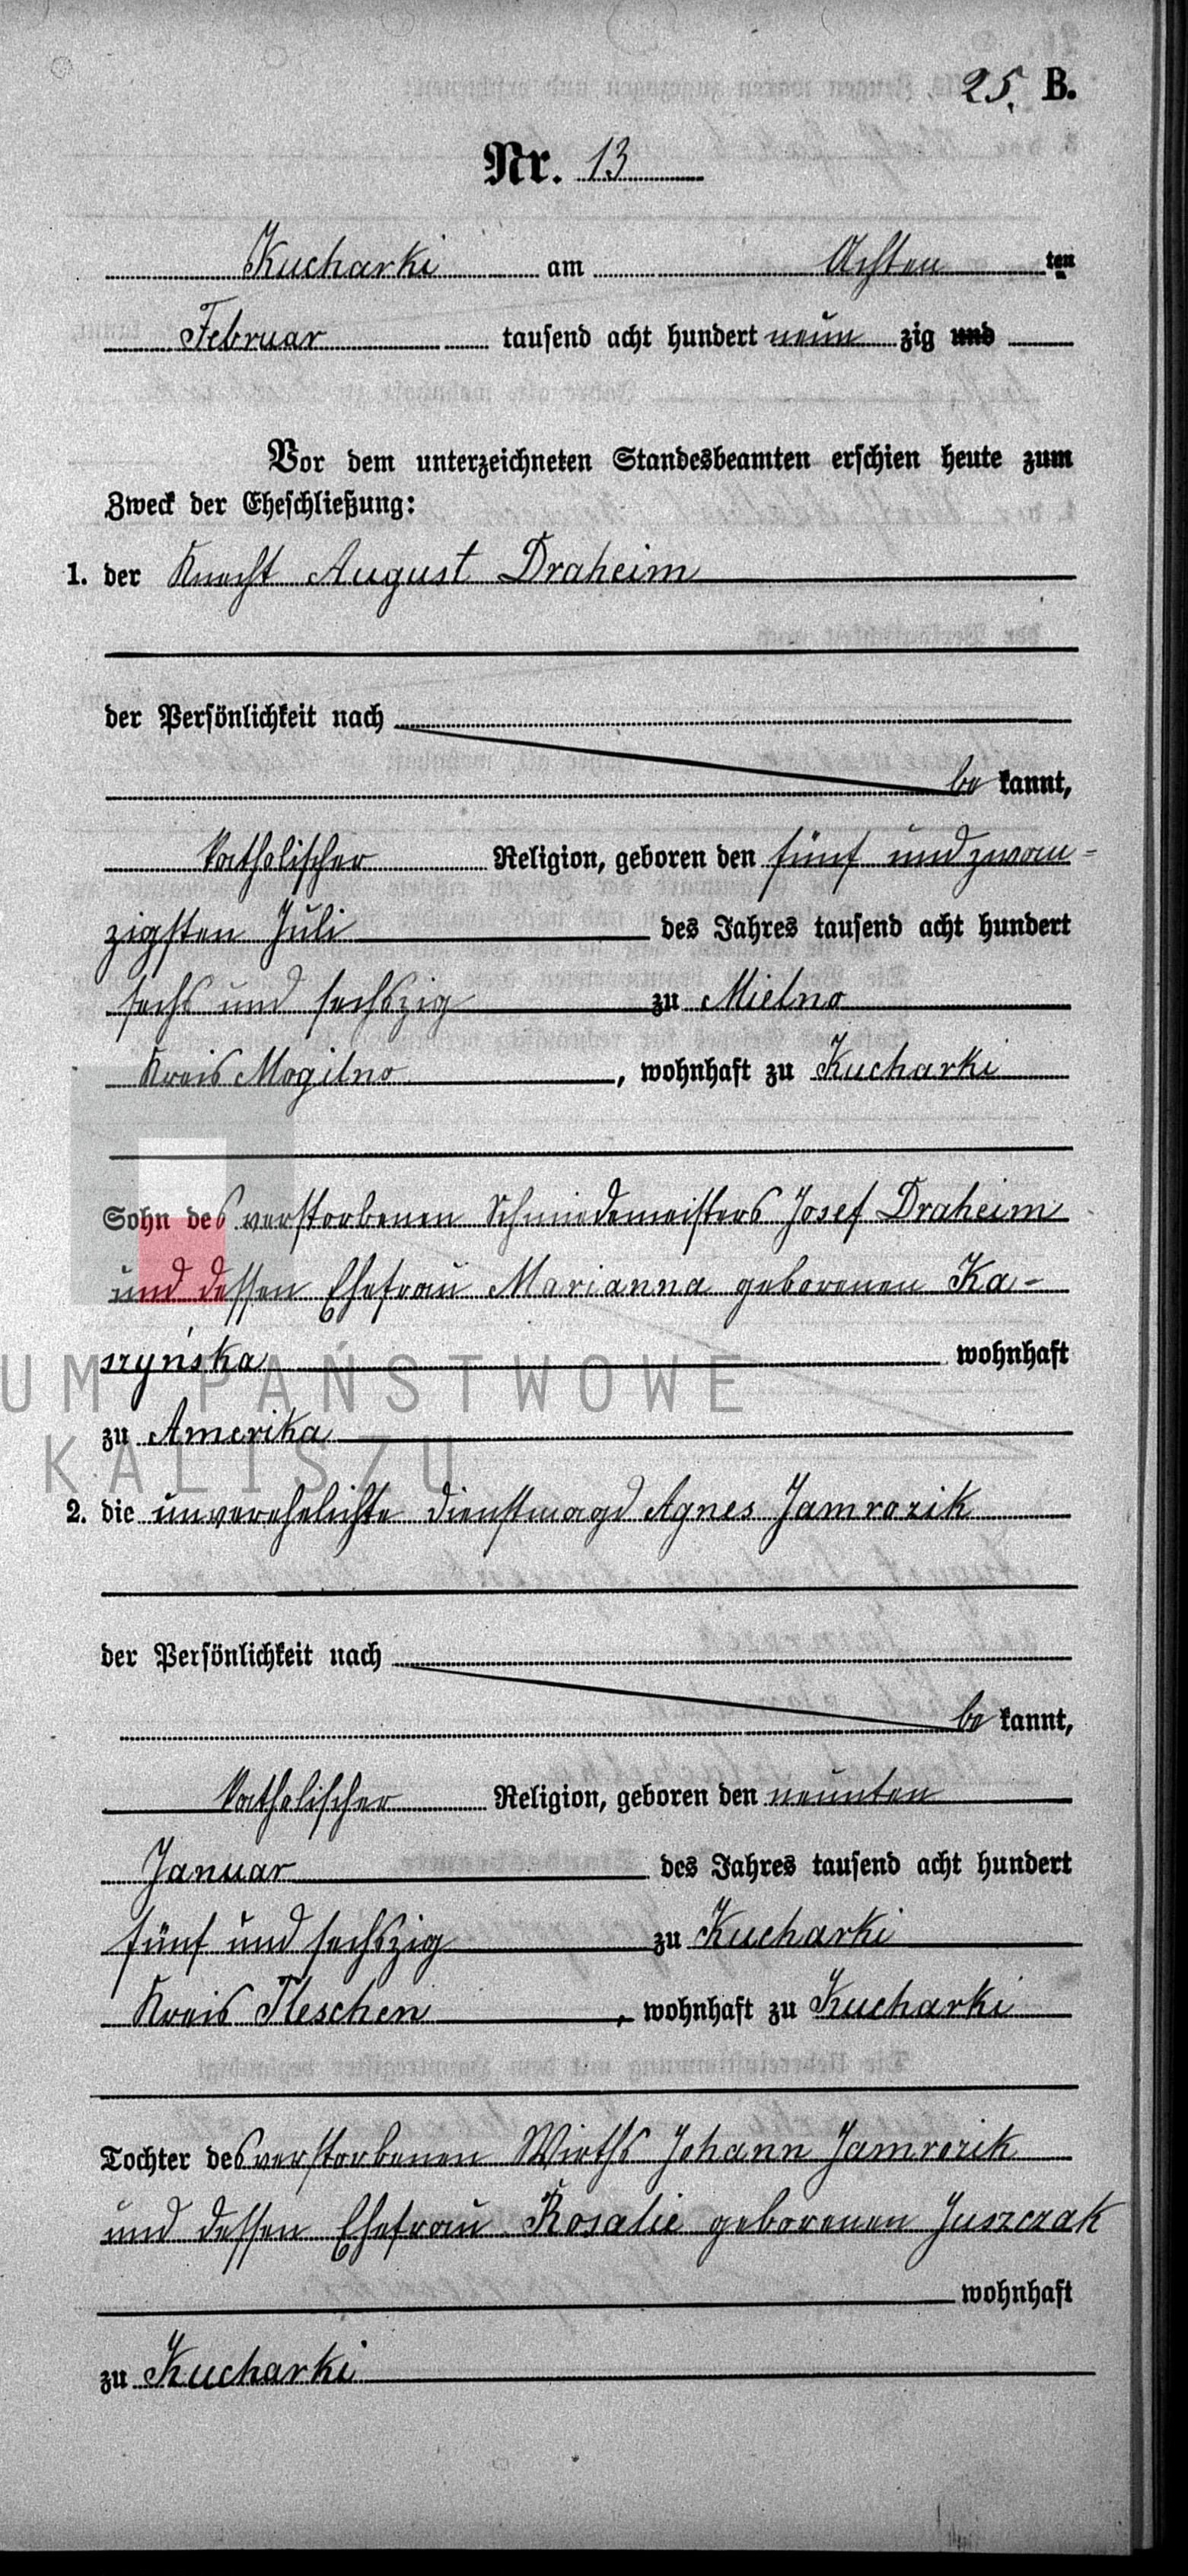 25. B.
Nr. 13
Kucharki am Achten ten
Februar tausend acht hundert neun zig und
Vor dem unterzeichneten Standesbeamten erschien heute zum
Zweck der Eheschließung:
1. der Knecht August Draheim
der Persönlichkeit nach
be kannt,
katholischer Religion, geboren den fünf und zwan=
zigsten Juli des Jahres tausend acht hundert
sechs und sechszig zu Mielno
Kreis Mogilno, wohnhaft zu Kucharki
Sohn des verstorbenen Schmiedemeisters Josef Draheim
und dessen Ehefrau Marianna geborenen Ka-
szyńska wohnhaft
zu Amerika
2. die unverehelichte Dienstmagd Agnes Jamrozik
der Persönlichkeit nach
be kannt,
katholischer Religion, geboren den neunten
Januar des Jahres tausend acht hundert
fünf und sechszig zu Kucharki
Kreis Pleschen, wohnhaft zu Kucharki
Tochter des verstorbenen Wirths Johann Jamrozik
und dessen Ehefrau Rosalie geborenen Juszczak
wohnhaft
zu Kucharki
UM PAŃSTWOWE
KALISZU